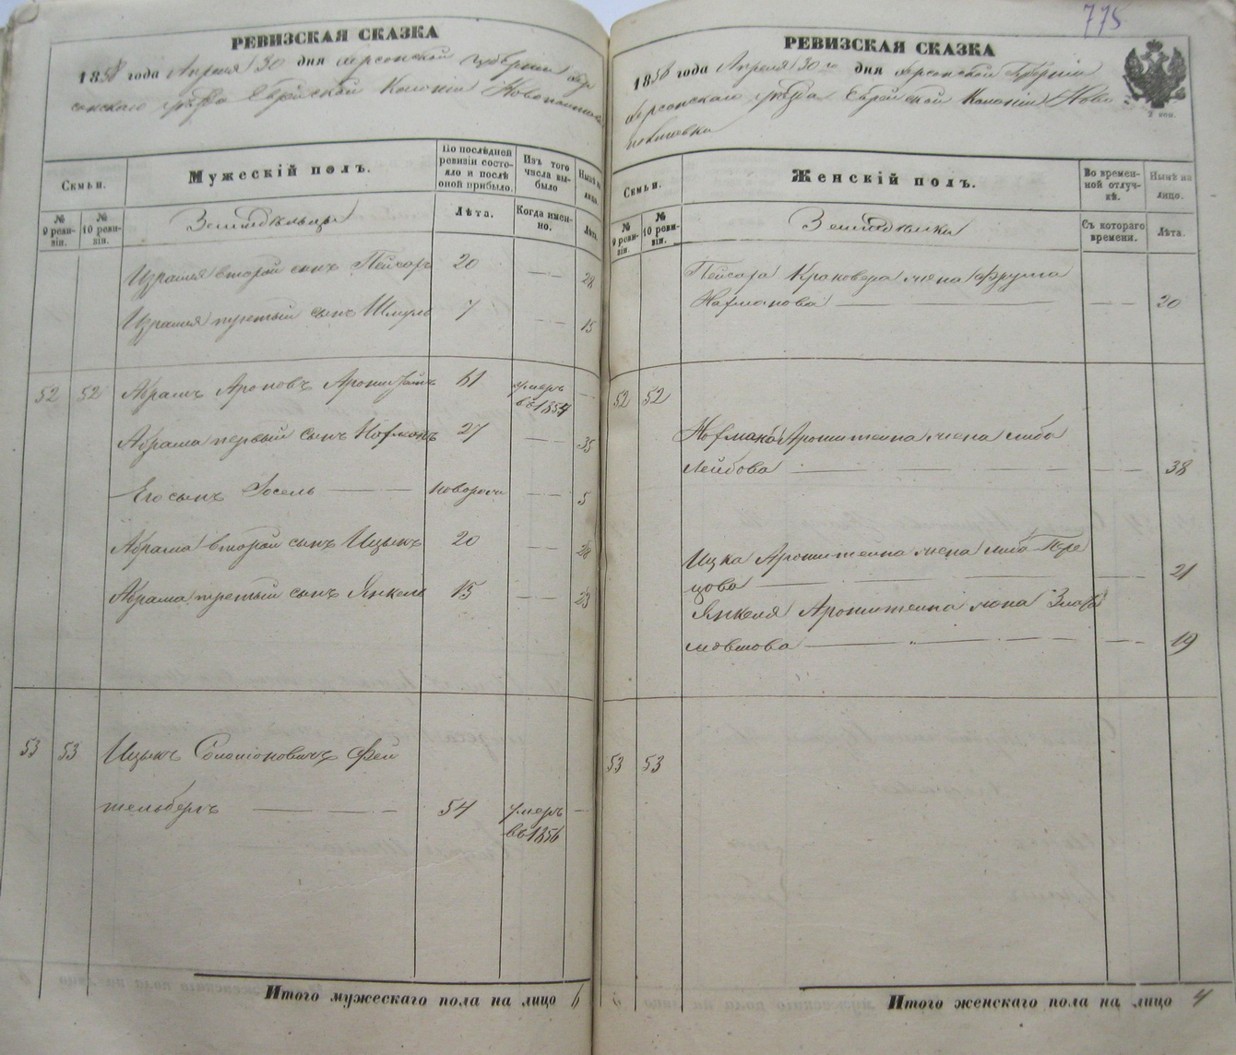 775
РЕВИЗСКАЯ СКАЗКА
1858 года Апреля 30 дня Херсонской Губернии Хер
сонскаго уезда Еврейской Колонии Новополтавки
Семьи.
Мужескій полъ.
По послѣдней ревизіи состояло и послѣ оной прибыло.
Изъ того числа выбыло
Нынѣ на лицо.
№ 9 ревизіи.
№ 10 ревизіи.
Земледельцы
Лѣта.
Когда именно.
Лѣта.
Израиля второй сынъ Пейсахъ 20 — — 28
Израиля третий сынъ Шмуль 7 — — 15
52 52 Абрамъ Ароновъ 61 умеръ
въ 1854 —
Абрама первый сынъ Нохманъ 27 — — 35
Его сынъ Иосель — новорож — — 5
Абрама второй сынъ Ицыкъ 20 — — 28
Абрама третий сынъ Янкель 15 — — 23
53 53 Ицыкъ Соломоновичъ Фей
тельбергъ — 54 умеръ —
въ 1856
Итого мужескаго пола на лицо 6
РЕВИЗСКАЯ СКАЗКА
1858 года Апреля 30 го дня Херсонской Губернии
Херсонскаго уезда Еврейской Колонии Ново
полтавки
2 коп.
Семьи.
Женскій полъ.
Во временной отлучкѣ.
Нынѣ на лицо.
№ 9 ревизіи.
№ 10 ревизіи.
Земледельки
Съ котораго времени.
Лѣта.
Пейсаха жена Фрума
Нахманова — — — 20
52 52
Нохмана жена Либа
Лейбова — — — 38
Ицка жена Либа Пере
цова — — — 21
Янкеля жена Злата
— — — 19
53 53
Итого женскаго пола на лицо 4